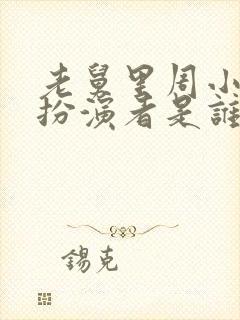 老舅里周小
扮演者是誰
錫克